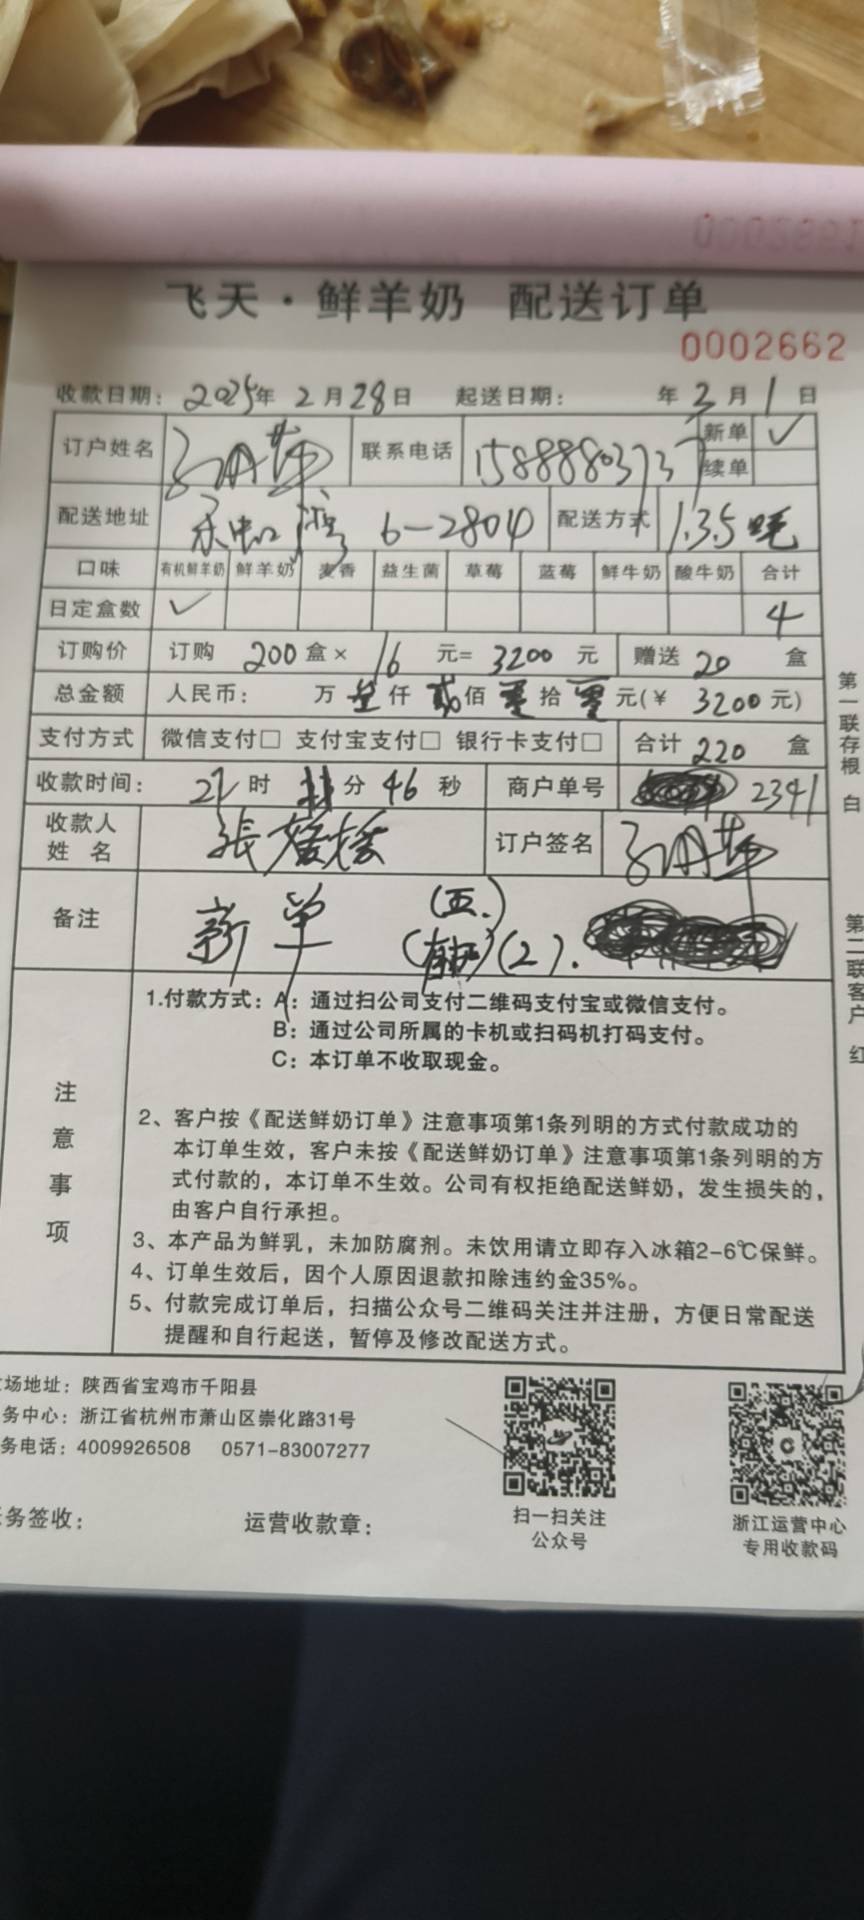 飞天·鲜羊奶 配送订单
0002662
收款日期: 2025年 2月28日 起送日期: 年 3月 1日
订户姓名 联系电话 15888803737 新单 ✓
续单
配送地址 6-2804 配送方式 1.3.5
口味 有机鲜羊奶 鲜羊奶 麦香 益生菌 草莓 蓝莓 鲜牛奶 酸牛奶 合计
日定盒数 ✓ 4
订购价 订购 200盒× 16 元= 3200 元 赠送 20 盒
总金额 人民币: 万 叁仟 贰佰 零拾 零元(¥ 3200元)
支付方式 微信支付□ 支付宝支付□ 银行卡支付□ 合计 220 盒
收款时间: 21时 分 46秒 商户单号 2341
收款人
姓 名 張 订户签名
备注 新单 (五.)
(2).
注意事项
1.付款方式: A: 通过扫公司支付二维码支付宝或微信支付。
B: 通过公司所属的卡机或扫码机打码支付。
C: 本订单不收取现金。
2、客户按《配送鲜奶订单》注意事项第1条列明的方式付款成功的
本订单生效，客户未按《配送鲜奶订单》注意事项第1条列明的方
式付款的，本订单不生效。公司有权拒绝配送鲜奶，发生损失的，
由客户自行承担。
3、本产品为鲜乳，未加防腐剂。未饮用请立即存入冰箱2-6℃保鲜。
4、订单生效后，因个人原因退款扣除违约金35%。
5、付款完成订单后，扫描公众号二维码关注并注册，方便日常配送
提醒和自行起送，暂停及修改配送方式。
第一联存根 白
第二联客户 红
场地址: 陕西省宝鸡市千阳县
务中心: 浙江省杭州市萧山区崇化路31号
务电话: 4009926508 0571-83007277
务签收: 运营收款章:
扫一扫关注
公众号
浙江运营中心
专用收款码